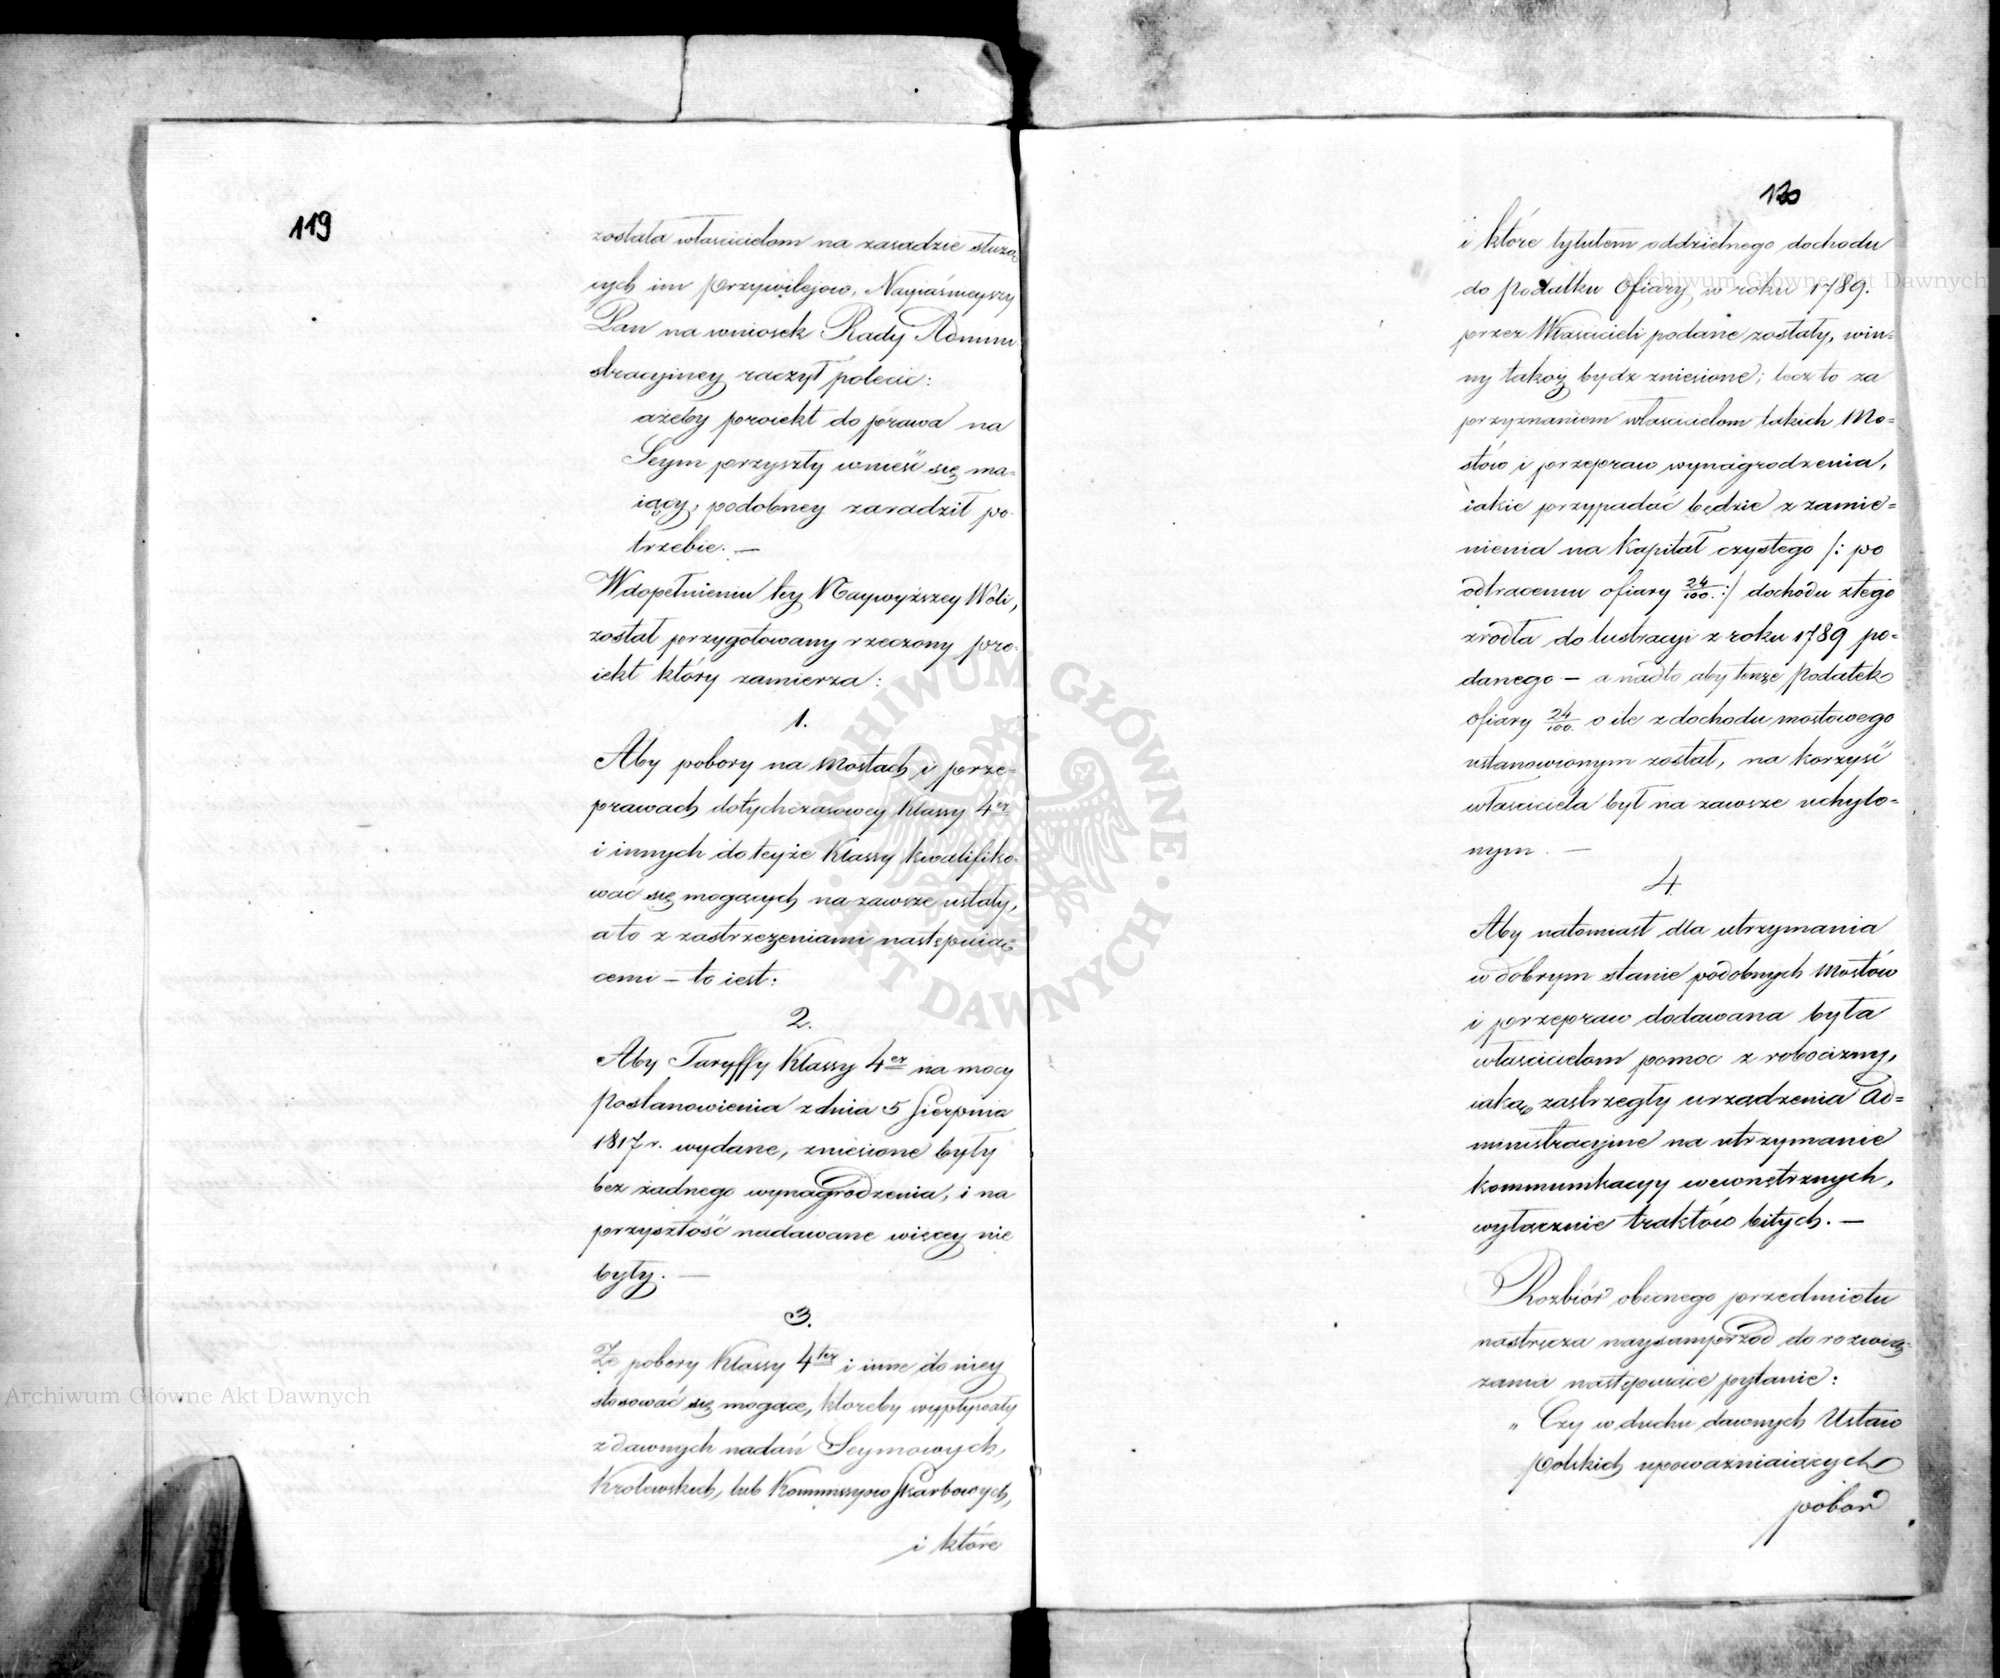 119
została właścicielom na zasadzie służą
cych im przywilejow, Nayiaśnieyszy
Pan na wniosek Rady Admini
stracyiney raczył polecić:
ażeby proiekt do prawa na
Seym przyszły wnieść się ma=
iący, podobney zaradził po
trzebie. —
W dopełnieniu tey Naywyższey Woli,
został przygotowany rzeczony pro-
iekt który zamierza:
1.
Aby pobory na Mostach i prze=
prawach dotychczasowey Klassy 4er
i innych do teyże Klassy kwalifiko-
wać się mogących na zawsze ustały,
a to z zastrzeżeniami następuią=
cemi — to iest:
2.
Aby Taryffy Klassy 4er na mocy
Postanowienia z dnia 5 Sierpnia
1817 r. wydane, zniesione były
bez żadnego wynagrodzenia, i na
przyszłość nadawane więcey nie
były. —
3.
Że pobory Klassy 4ter i inne do niey
stosować się mogące, któreby wypływały
z dawnych nadań Seymowych,
Krolewskich, lub Kommissyow Skarbowych,
i które
120
i które tytułem oddzielnego dochodu
do podatku Ofiary w roku 1789.
przez Właścicieli podane zostały, win=
ny takoż bydz zniesione; lecz to za
przyznaniem właścicielom takich Mo=
stów i przepraw wynagrodzenia,
iakie przypadać będzie z zamie=
nienia na Kapitał czystego /: po
odtrąceniu ofiary 24/100. :/ dochodu z tego
zrodła do lustracyi z roku 1789 po=
danego — a nadto aby tenże Podatek
Ofiary 24/100. o ile z dochodu mostowego
ustanowionym został, na korzyść
właściciela był na zawsze uchylo=
nym. —
4
Aby natomiast dla utrzymania
w dobrym stanie podobnych Mostów
i przepraw dodawana była
właścicielom pomoc z robocizny,
iaką zastrzegły urządzenia Ad=
ministracyine na utrzymanie
kommunikacyy wewnętrznych,
wyłącznie traktów bitych. —
Rozbiór obecnego przedmiotu
nastręcza naysamprzod do rozwią=
zania następuiące pytanie:
„ Czy w duchu dawnych Ustaw
Polskich upoważniaiących
pobor
Archiwum Główne Akt Dawnych
Archiwum Główne Akt Dawnych
ARCHIWUM GŁÓWNE · AKT DAWNYCH ·